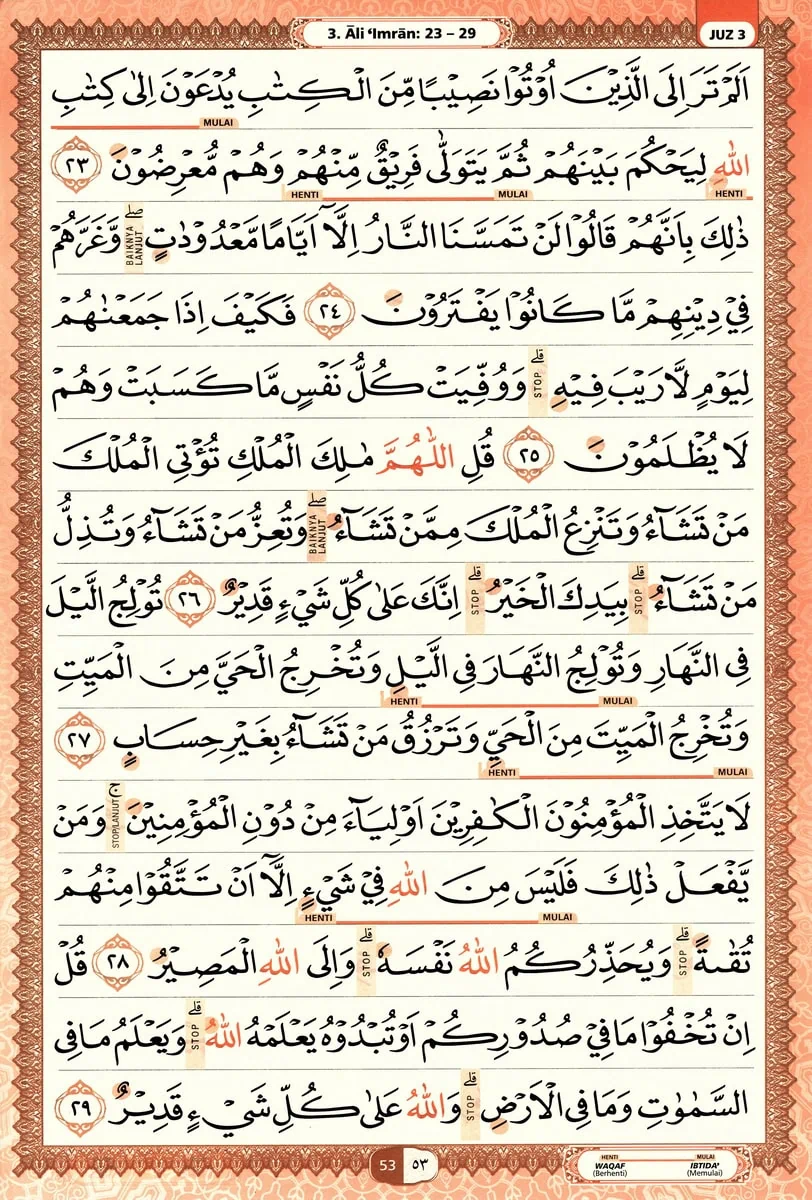 3. Āli ‘Imrān: 23 – 29
JUZ 3
اَلَمْ تَرَ اِلَى الَّذِيْنَ اُوْتُوْا نَصِيْبًا مِّنَ الْكِتٰبِ يُدْعَوْنَ اِلٰى كِتٰبِ
MULAI
اللّٰهِ لِيَحْكُمَ بَيْنَهُمْ ثُمَّ يَتَوَلّٰى فَرِيْقٌ مِّنْهُمْ وَهُمْ مُّعْرِضُوْنَ ٢٣
HENTI MULAI HENTI
ذٰلِكَ بِاَنَّهُمْ قَالُوْا لَنْ تَمَسَّنَا النَّارُ اِلَّآ اَيَّامًا مَّعْدُوْدٰتٍ ۖ BAIKNYA LANJUT وَّغَرَّهُمْ
فِيْ دِيْنِهِمْ مَّا كَانُوْا يَفْتَرُوْنَ ٢٤ فَكَيْفَ اِذَا جَمَعْنٰهُمْ
لِيَوْمٍ لَّا رَيْبَ فِيْهِ ۗ STOP وَوُفِّيَتْ كُلُّ نَفْسٍ مَّا كَسَبَتْ وَهُمْ
لَا يُظْلَمُوْنَ ٢٥ قُلِ اللّٰهُمَّ مٰلِكَ الْمُلْكِ تُؤْتِى الْمُلْكَ
مَنْ تَشَاۤءُ وَتَنْزِعُ الْمُلْكَ مِمَّنْ تَشَاۤءُ ۖ BAIKNYA LANJUT وَتُعِزُّ مَنْ تَشَاۤءُ وَتُذِلُّ
مَنْ تَشَاۤءُ ۗ STOP بِيَدِكَ الْخَيْرُ ۗ STOP اِنَّكَ عَلٰى كُلِّ شَيْءٍ قَدِيْرٌ ٢٦ تُوْلِجُ الَّيْلَ
فِى النَّهَارِ وَتُوْلِجُ النَّهَارَ فِى الَّيْلِ وَتُخْرِجُ الْحَيَّ مِنَ الْمَيِّتِ
MULAI HENTI
وَتُخْرِجُ الْمَيِّتَ مِنَ الْحَيِّ وَتَرْزُقُ مَنْ تَشَاۤءُ بِغَيْرِ حِسَابٍ ٢٧
MULAI HENTI
لَا يَتَّخِذِ الْمُؤْمِنُوْنَ الْكٰفِرِيْنَ اَوْلِيَاۤءَ مِنْ دُوْنِ الْمُؤْمِنِيْنَ ۚ STOP/LANJUT وَمَنْ
يَّفْعَلْ ذٰلِكَ فَلَيْسَ مِنَ اللّٰهِ فِيْ شَيْءٍ اِلَّآ اَنْ تَتَّقُوْا مِنْهُمْ
MULAI HENTI
تُقٰىةً ۗ STOP وَيُحَذِّرُكُمُ اللّٰهُ نَفْسَهٗ ۗ STOP وَاِلَى اللّٰهِ الْمَصِيْرُ ٢٨ قُلْ
اِنْ تُخْفُوْا مَا فِيْ صُدُوْرِكُمْ اَوْ تُبْدُوْهُ يَعْلَمْهُ اللّٰهُ ۗ STOP وَيَعْلَمُ مَا فِى
السَّمٰوٰتِ وَمَا فِى الْاَرْضِ ۗ STOP وَاللّٰهُ عَلٰى كُلِّ شَيْءٍ قَدِيْرٌ ٢٩
53 ٥٣
HENTI MULAI
WAQAF IBTIDA'
(Berhenti) (Memulai)